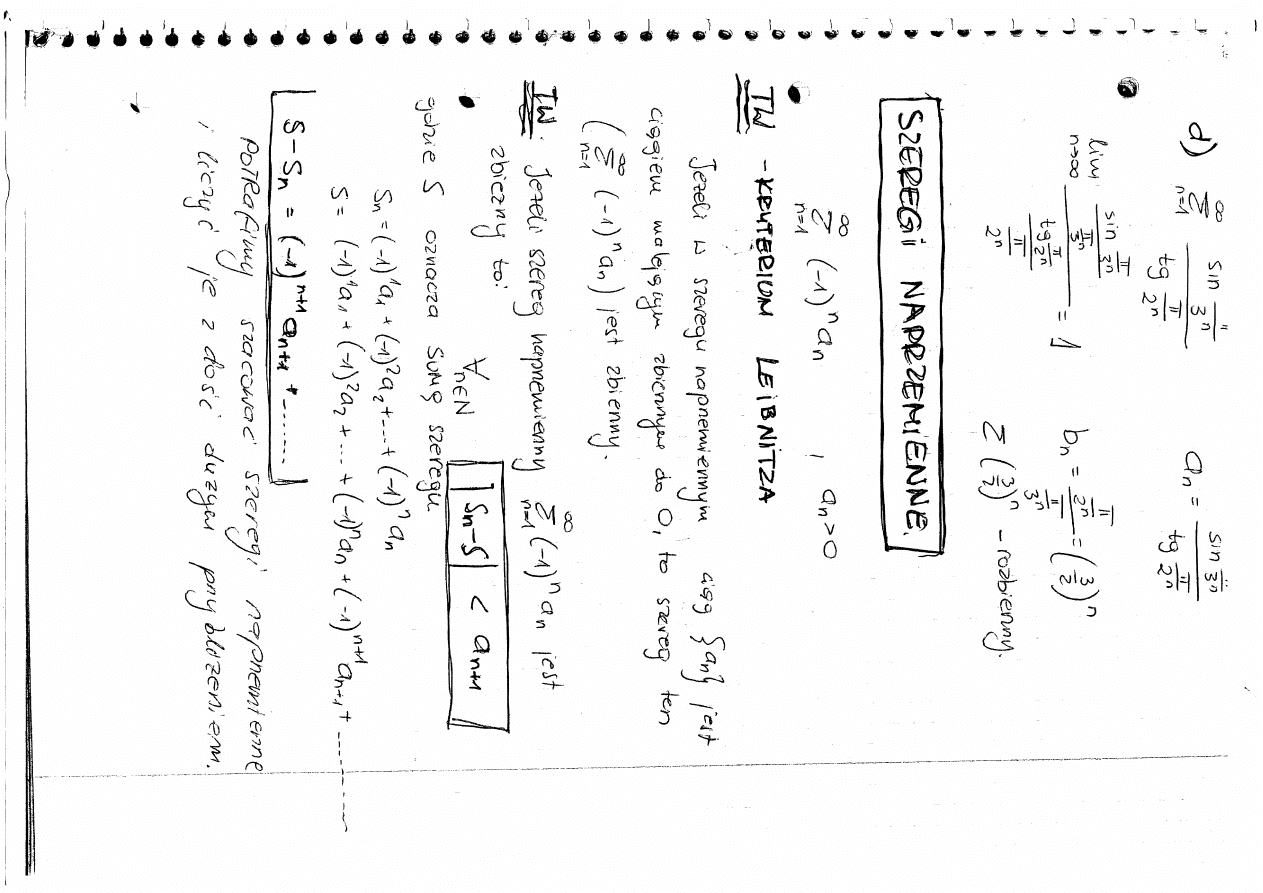 d) $\sum_{n=1}^{\infty} \frac{\sin \frac{\pi}{3^n}}{\operatorname{tg} \frac{\pi}{2^n}}$ $a_n = \frac{\sin \frac{\pi}{3^n}}{\operatorname{tg} \frac{\pi}{2^n}}$
$\lim_{n \to \infty} \frac{\frac{\sin \frac{\pi}{3^n}}{\frac{\pi}{3^n}}}{\frac{\operatorname{tg} \frac{\pi}{2^n}}{\frac{\pi}{2^n}}} = 1$ $b_n = \frac{\frac{\pi}{2^n}}{\frac{\pi}{3^n}} = \left(\frac{3}{2}\right)^n$
$\sum \left(\frac{3}{2}\right)^n$ - rozbieżny.
SZEREGI NAPRZEMIENNE.
$\sum_{n=1}^{\infty} (-1)^n a_n$ , $a_n > 0$
TW - KRYTERIUM LEIBNITZA
Jeżeli w szeregu naprzemiennym ciąg $\{a_n\}$ jest
ciągiem malejącym zbieżnym do 0, to szereg ten
$\left(\sum_{n=1}^{\infty} (-1)^n a_n\right)$ jest zbieżny.
TW. Jeżeli szereg naprzemienny $\sum_{n=1}^{\infty} (-1)^n a_n$ jest
zbieżny to: $\forall_{n \in N}$ $|S_n - S| < a_{n+1}$
gdzie S oznacza sumę szeregu
$S_n = (-1)^1 a_1 + (-1)^2 a_2 + \dots + (-1)^n a_n$
$S = (-1)^1 a_1 + (-1)^2 a_2 + \dots + (-1)^n a_n + (-1)^{n+1} a_{n+1} + \dots$
$S - S_n = (-1)^{n+1} a_{n+1} + \dots$
Potrafimy szacować szeregi naprzemienne
i liczyć je z dość dużym przybliżeniem.